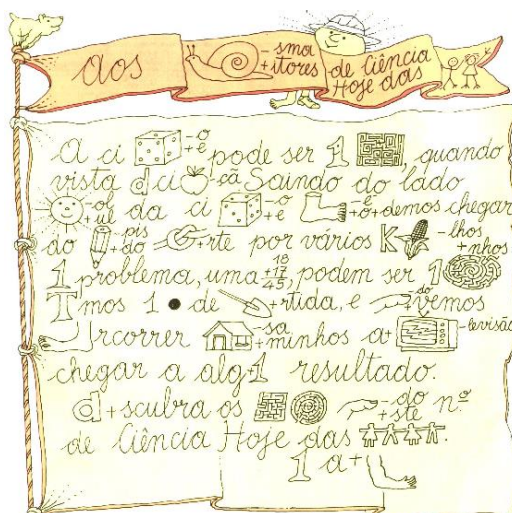 aos -sma +itores de Ciência Hoje das
A ci -o +e pode ser 1 , quando
vista d ci -çã Saindo do lado
-ol +ul da ci -o +e -e +o+demos chegar
ao -pis +do +rte por vários K -lhos +nhos
1 problema, uma 18 +17 45, podem ser 1
T mos 1 de +rtida, e -do +vemos
rcorrer -sa +minhos a+ -levisão
chegar a alg+1 resultado.
d+scubra os -do +ste nº
de Ciência Hoje das .
1 a+